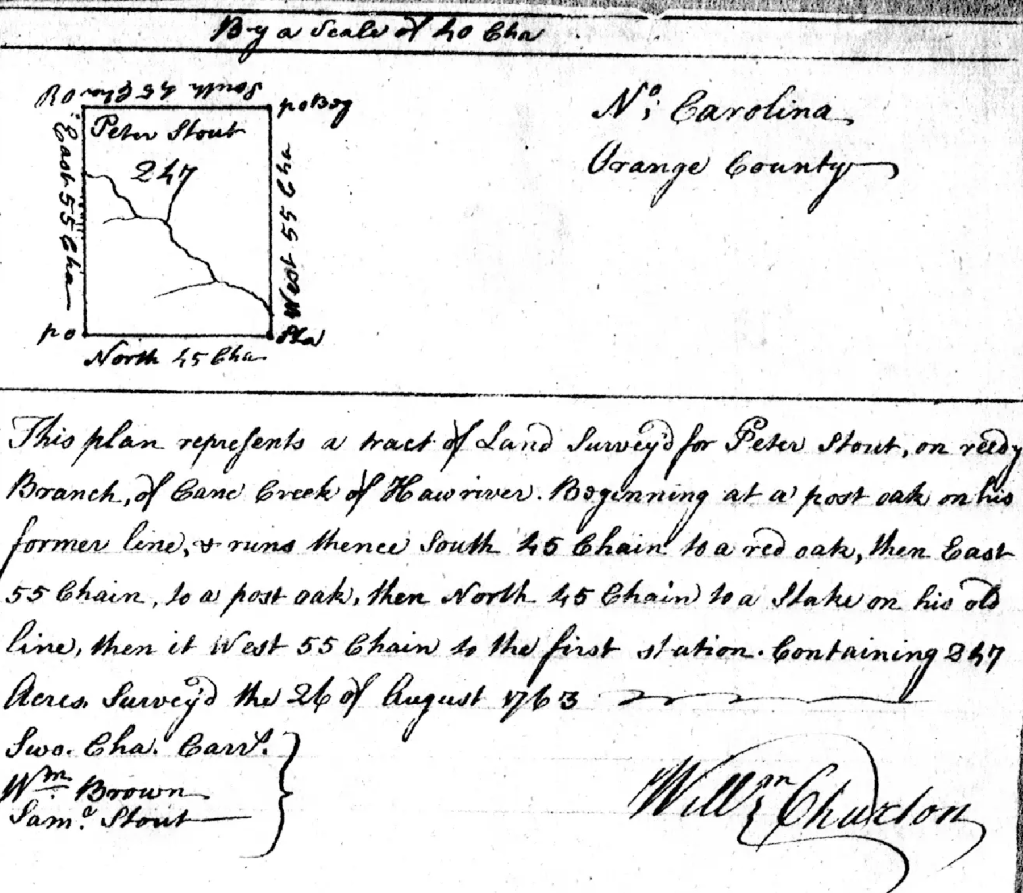 By a Scale of 40 Cha
South 45 Cha
Ro
po Beg
Peter Stout
247
East 55 Cha
West 55 Cha
po
Sta
North 45 Cha
No: Carolina
Orange County
This plan represents a tract of Land Survey'd for Peter Stout, on reedy
Branch, of Cane Creek of Haw river. Beginning at a post oak on his
former line, & runs thence South 45 Chain to a red oak, then East
55 Chain, to a post oak, then North 45 Chain to a Stake on his old
line, then it West 55 Chain to the first station. Containing 247
Acres. Survey'd the 26 of August 1763
Swo. Cha. Carrs.
Wm. Brown
Sam.l Stout
Willm Churton